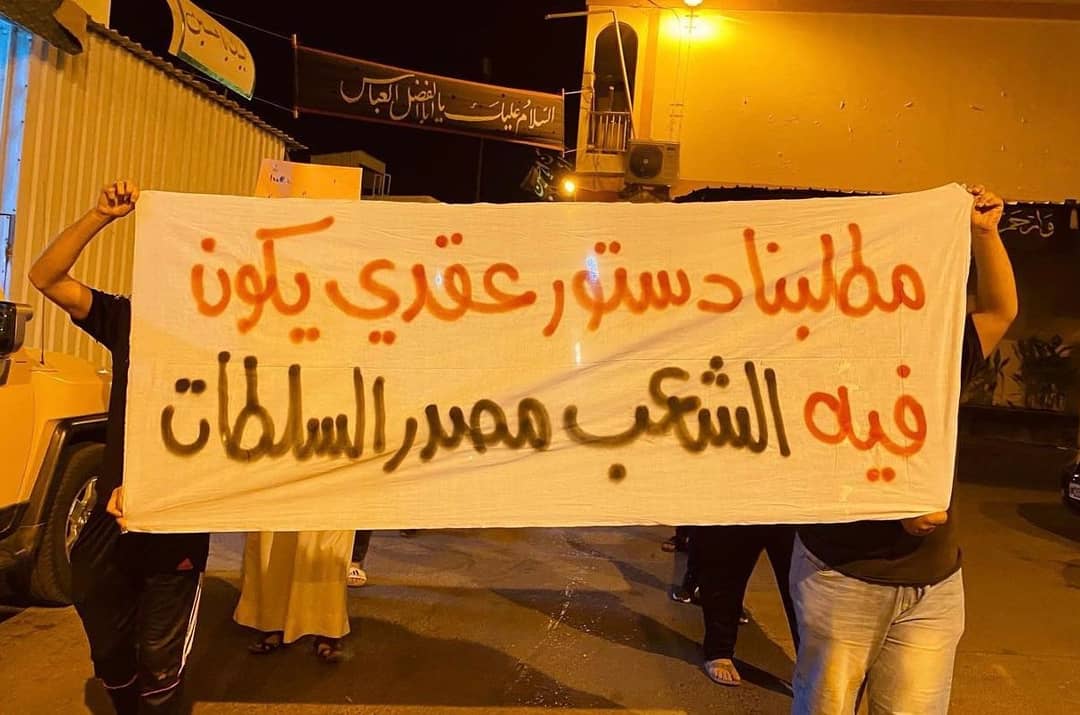 السلام عليك يا أبا الفضل العباس
مطالبنا دستور عقدي يكون
فيه الشعب مصدر السلطات